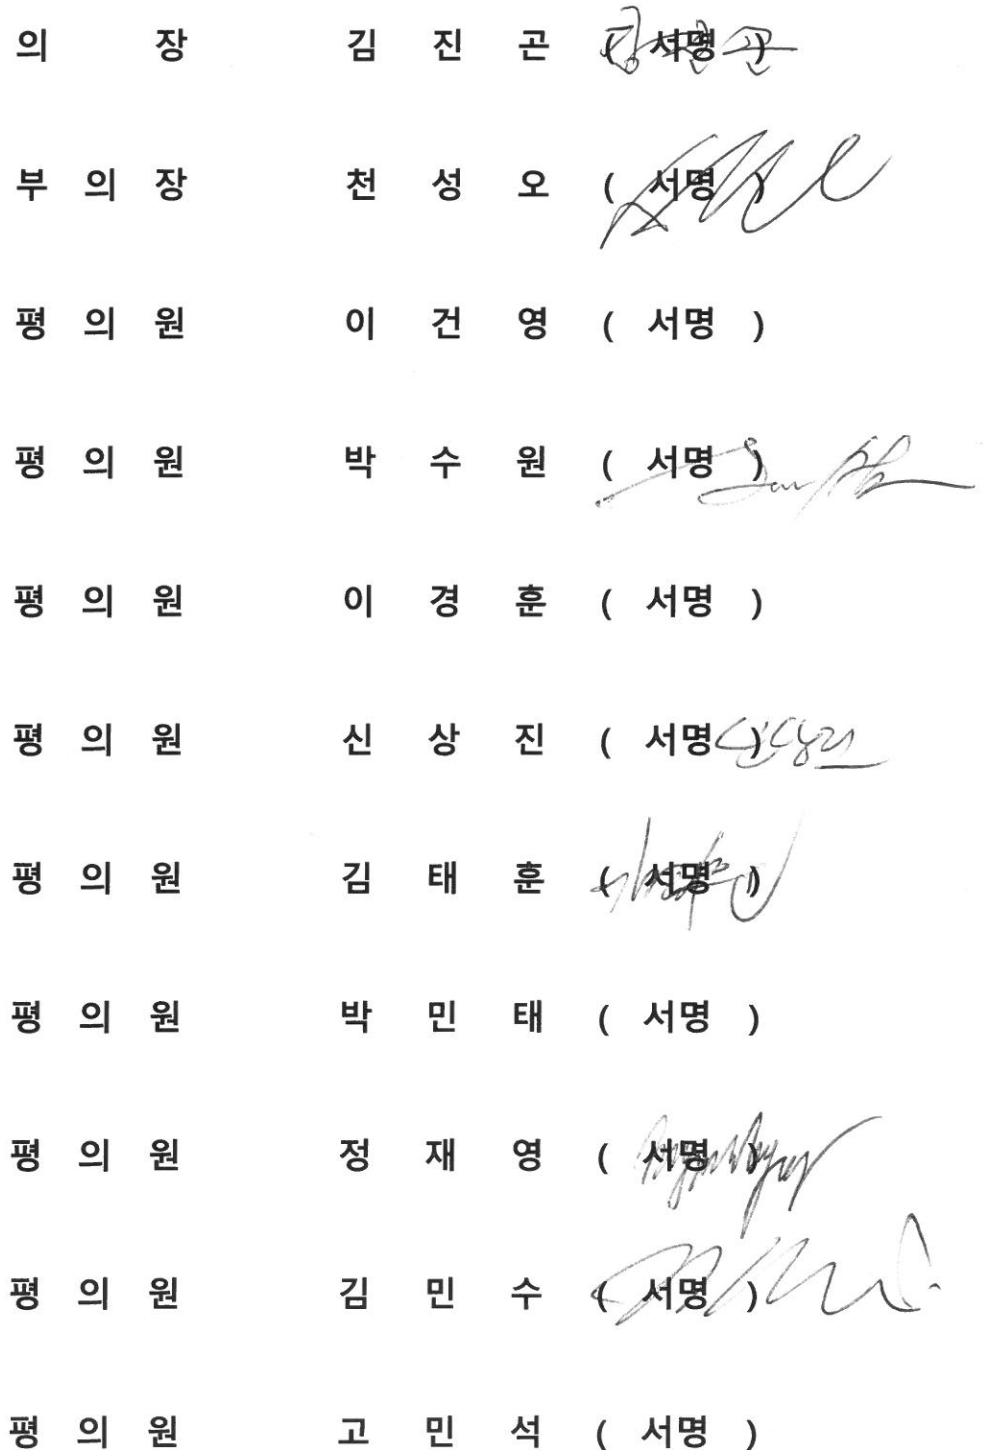 의 장 김 진 곤 ( 서명 )
부 의 장 천 성 오 ( 서명 )
평 의 원 이 건 영 ( 서명 )
평 의 원 박 수 원 ( 서명 )
평 의 원 이 경 훈 ( 서명 )
평 의 원 신 상 진 ( 서명 )
평 의 원 김 태 훈 ( 서명 )
평 의 원 박 민 태 ( 서명 )
평 의 원 정 재 영 ( 서명 )
평 의 원 김 민 수 ( 서명 )
평 의 원 고 민 석 ( 서명 )